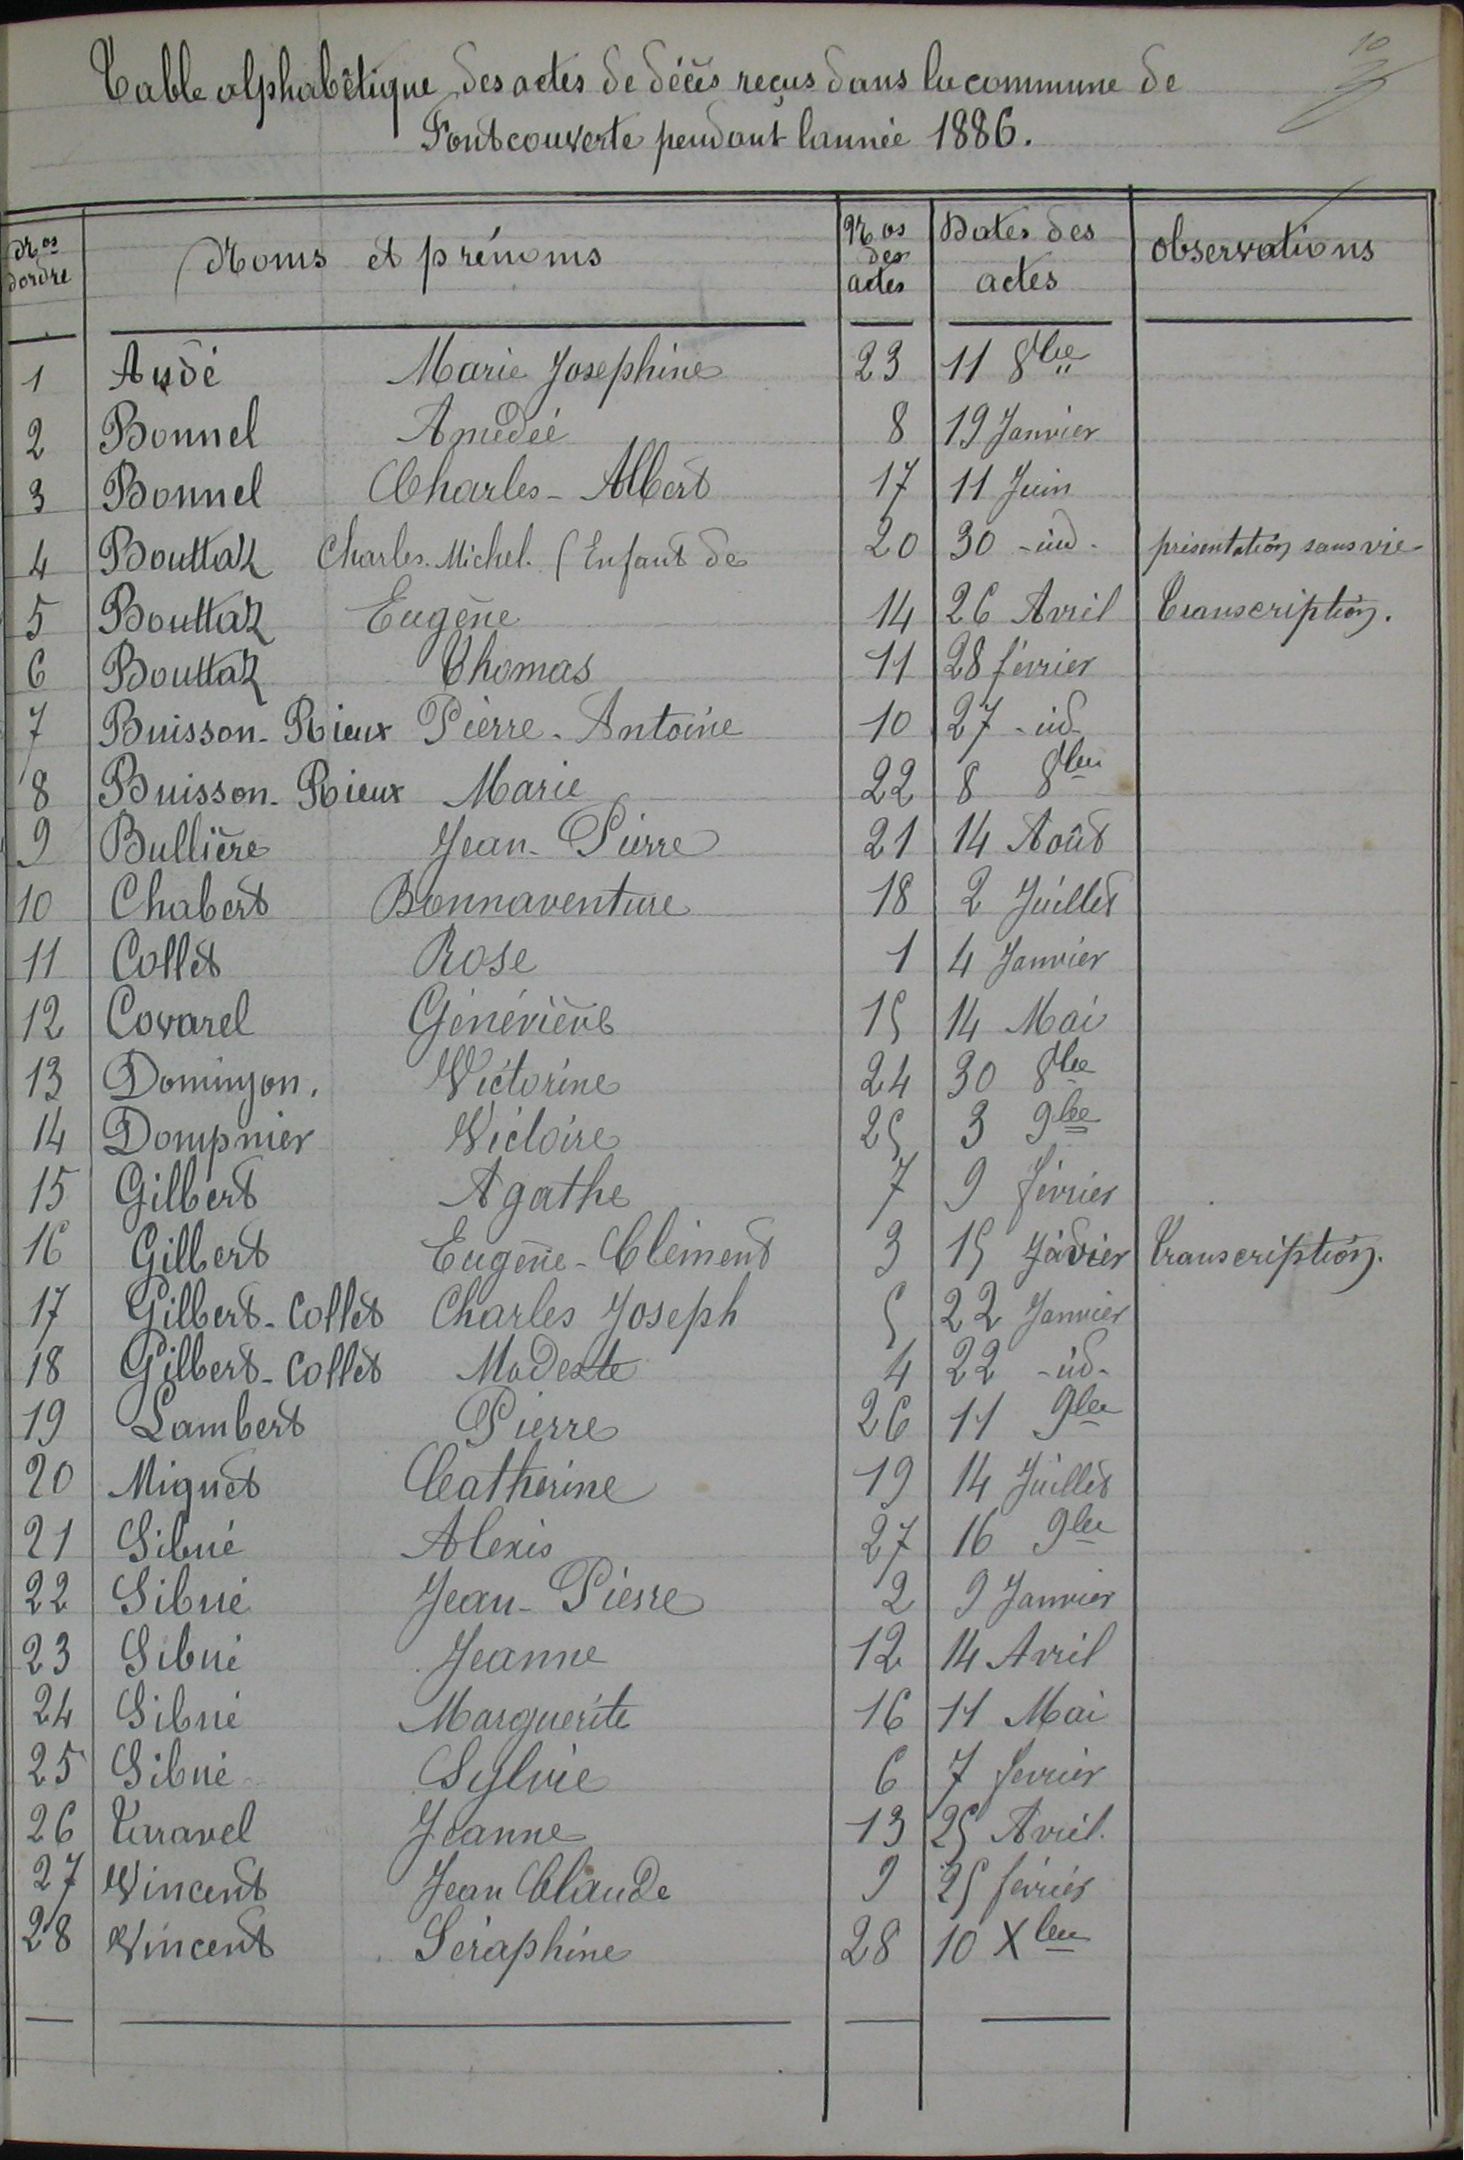 10
Table alphabêtique des actes de décès reçus dans la commune de
Fontcouverte pendant l'année 1886.
Nos d'ordre | Noms et prénoms | Nos des actes | Dates des actes | Observations
1 Audé Marie Josephine 23 11 8bre
2 Bonnel Amédée 8 19 Janvier
3 Bonnel Charles-Albert 17 11 Juin
4 Bouttaz Charles-Michel (Enfant de 20 30 -id- présentation sans vie
5 Bouttaz Eugène 14 26 Avril Transcription.
6 Bouttaz Thomas 11 28 février
7 Buisson-Rieux Pierre-Antoine 10 27 -id-
8 Buisson-Rieux Marie 22 8 8bre
9 Bullière Jean-Pierre 21 14 Août
10 Chabert Bonnaventure 18 2 Juillet
11 Collet Rose 1 4 Janvier
12 Covarel Généviève 15 14 Mai
13 Dominjon. Victorine 24 30 8bre
14 Dompnier Victoire 25 3 9bre
15 Gilbert Agathe 7 9 février
16 Gilbert Eugène-Clément 3 15 Transcription.
17 Gilbert-Collet Charles Joseph 5 22 Janvier
18 Gilbert-Collet Modeste 4 22 -id-
19 Lambert Pierre 26 11 9bre
20 Miguet Catherine 19 14 Juillet
21 Sibué Alexis 27 16 9bre
22 Sibué Jean-Pierre 2 9 Janvier
23 Sibué Jeanne 12 14 Avril
24 Sibué Marguerite 16 11 Mai
25 Sibué Sylvie 6 7 fevrier
26 Taravel Jeanne 13 25 Avril.
27 Vincent Jean Claude 9 25 février
28 Vincent Séraphine 28 10 Xbre